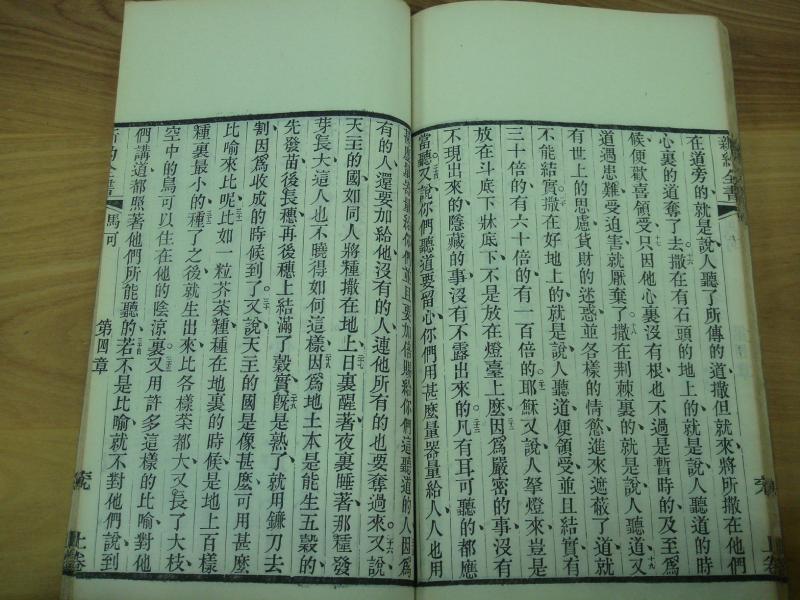 新約全書
在道旁的就是說人聽了所傳的道撒但就來將所撒在他們
心裏的道奪了去十六撒在有石頭的地上的就是說人聽道的時
候便歡喜領受十七只因他心裏沒有根也不過是暫時的及至爲
道遇患難受迫害就厭棄了十八撒在荆棘裏的就是說人聽道又十九
有世上的思慮貨財的迷惑並各樣的情慾進來遮蔽了道就
不能結實二十撒在好地上的就是說人聽道便領受並且結實有
三十倍的有六十倍的有一百倍的二十一耶穌又說人拏燈來豈是
放在斗底下牀底下不是放在燈臺上麽二十二因爲嚴密的事沒有
不現出來的隱藏的事沒有不露出來的二十三凡有耳可聽的都應
當聽二十四又說你們聽道要留心你們用甚麽量器量給人人也用
給你們並且要加倍賜給你們這聽道的人二十五因爲
有的人還要加給他沒有的人連他所有的也要奪過來二十六又說
天主的國如同人將種撒在地上二十七日裏醒著夜裏睡著那種發
芽長大這人也不曉得如何這樣二十八因爲地土本是能生五穀的
先發苗後長穗再後穗上結滿了穀實二十九旣是熟了就用鐮刀去
割因爲收成的時候到了三十又說天主的國是像甚麽可用甚麽
比喻來比呢三十一比如一粒芥菜種種在地裏的時候是地上百樣
種裏最小的三十二種了之後就生出來比各樣菜都大又長了大枝
空中的鳥可以住在他的陰涼裏三十三又用許多這樣的比喻對他
們講道都照著他們所能聽的三十四若不是比喻就不對他們說到
馬可
第四章
上卷